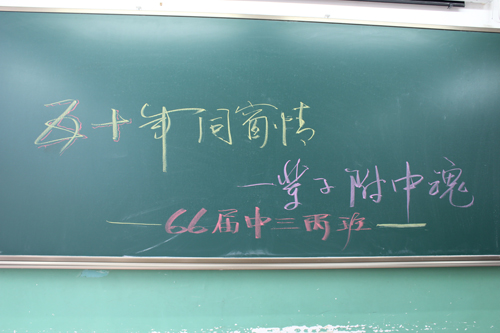 五十年同窗情
一辈子附中魂
—66届中三丙班—